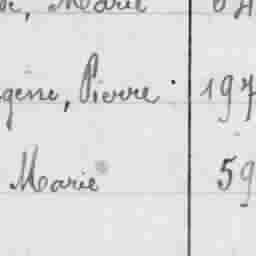 Marie
gène, Pierre 197
Marie 59